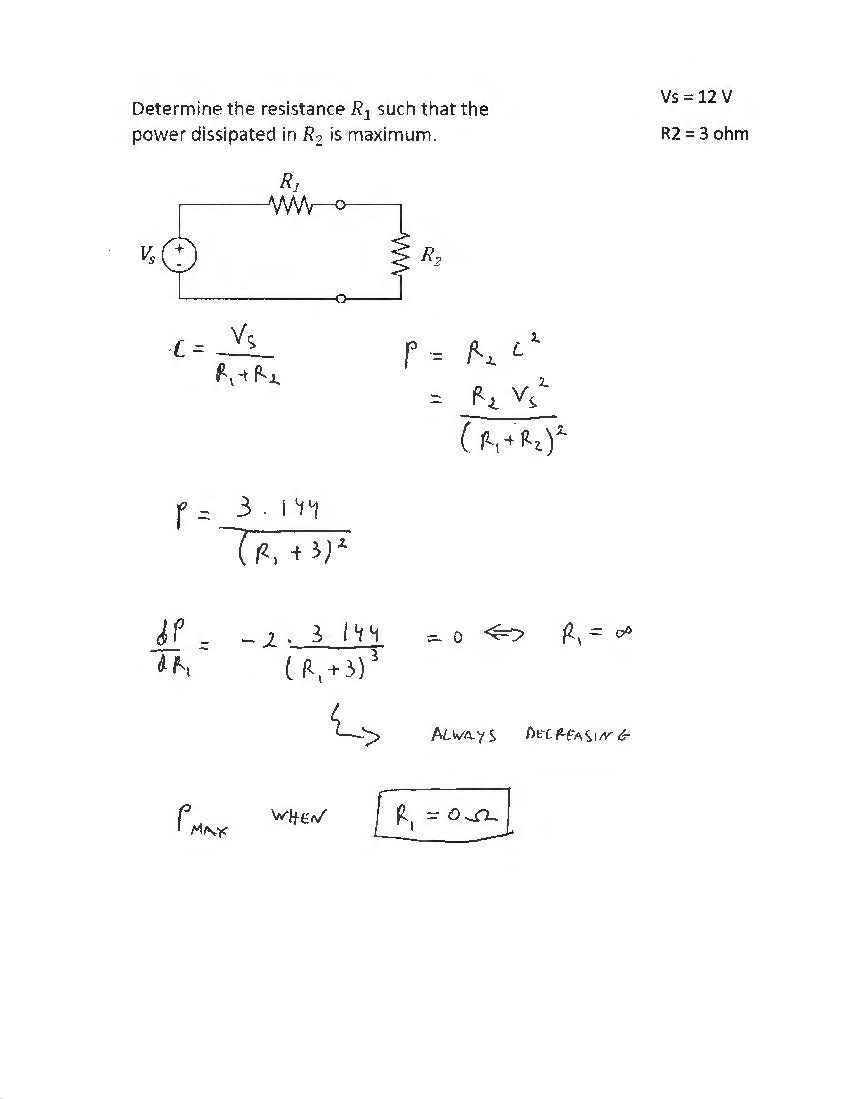 Determine the resistance R₁ such that the
power dissipated in R₂ is maximum.
Vs = 12 V
R2 = 3 ohm
R₁
Vₛ
+
-
R₂
i = Vs / (R₁ + R₂)
P = R₂ i²
= R₂ Vs² / (R₁ + R₂)²
P = 3 . 144 / (R₁ + 3)²
dP / dR₁ = -2 . 3 144 / (R₁ + 3)³ = 0 ⇔ R₁ = ∞
ALWAYS DECREASING
P MAX WHEN R₁ = 0 Ω